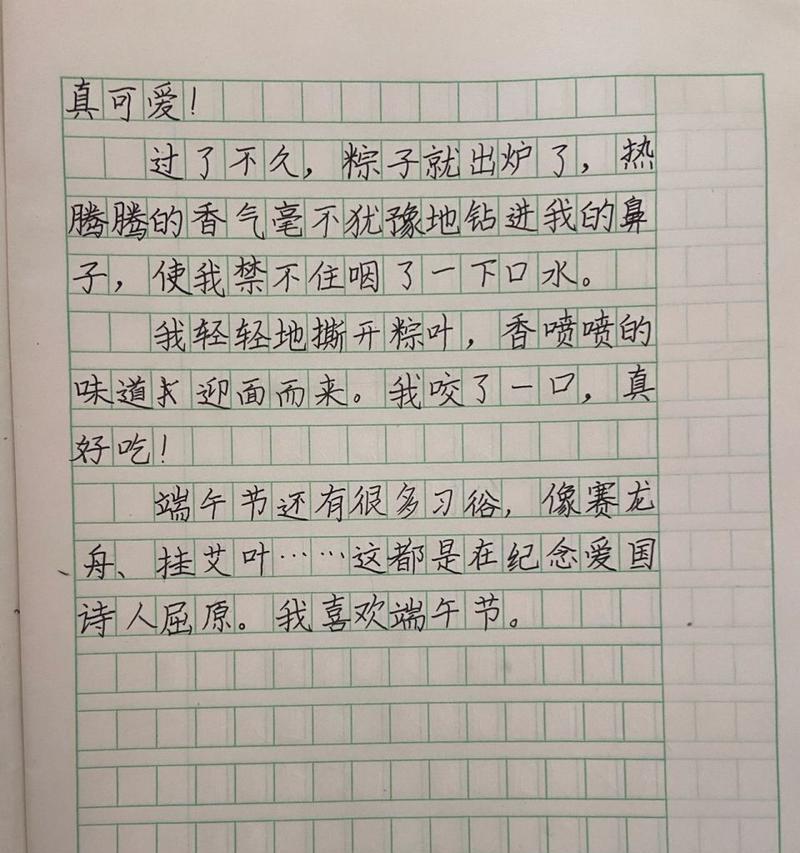 真可爱！
过了不久，粽子就出炉了，热
腾腾的香气毫不犹豫地钻进我的鼻
子，使我禁不住咽了一下口水。
我轻轻地撕开粽叶，香喷喷的
味道扑迎面而来。我咬了一口，真
好吃！
端午节还有很多习俗，像赛龙
舟、挂艾叶……这都是在纪念爱国
诗人屈原。我喜欢端午节。